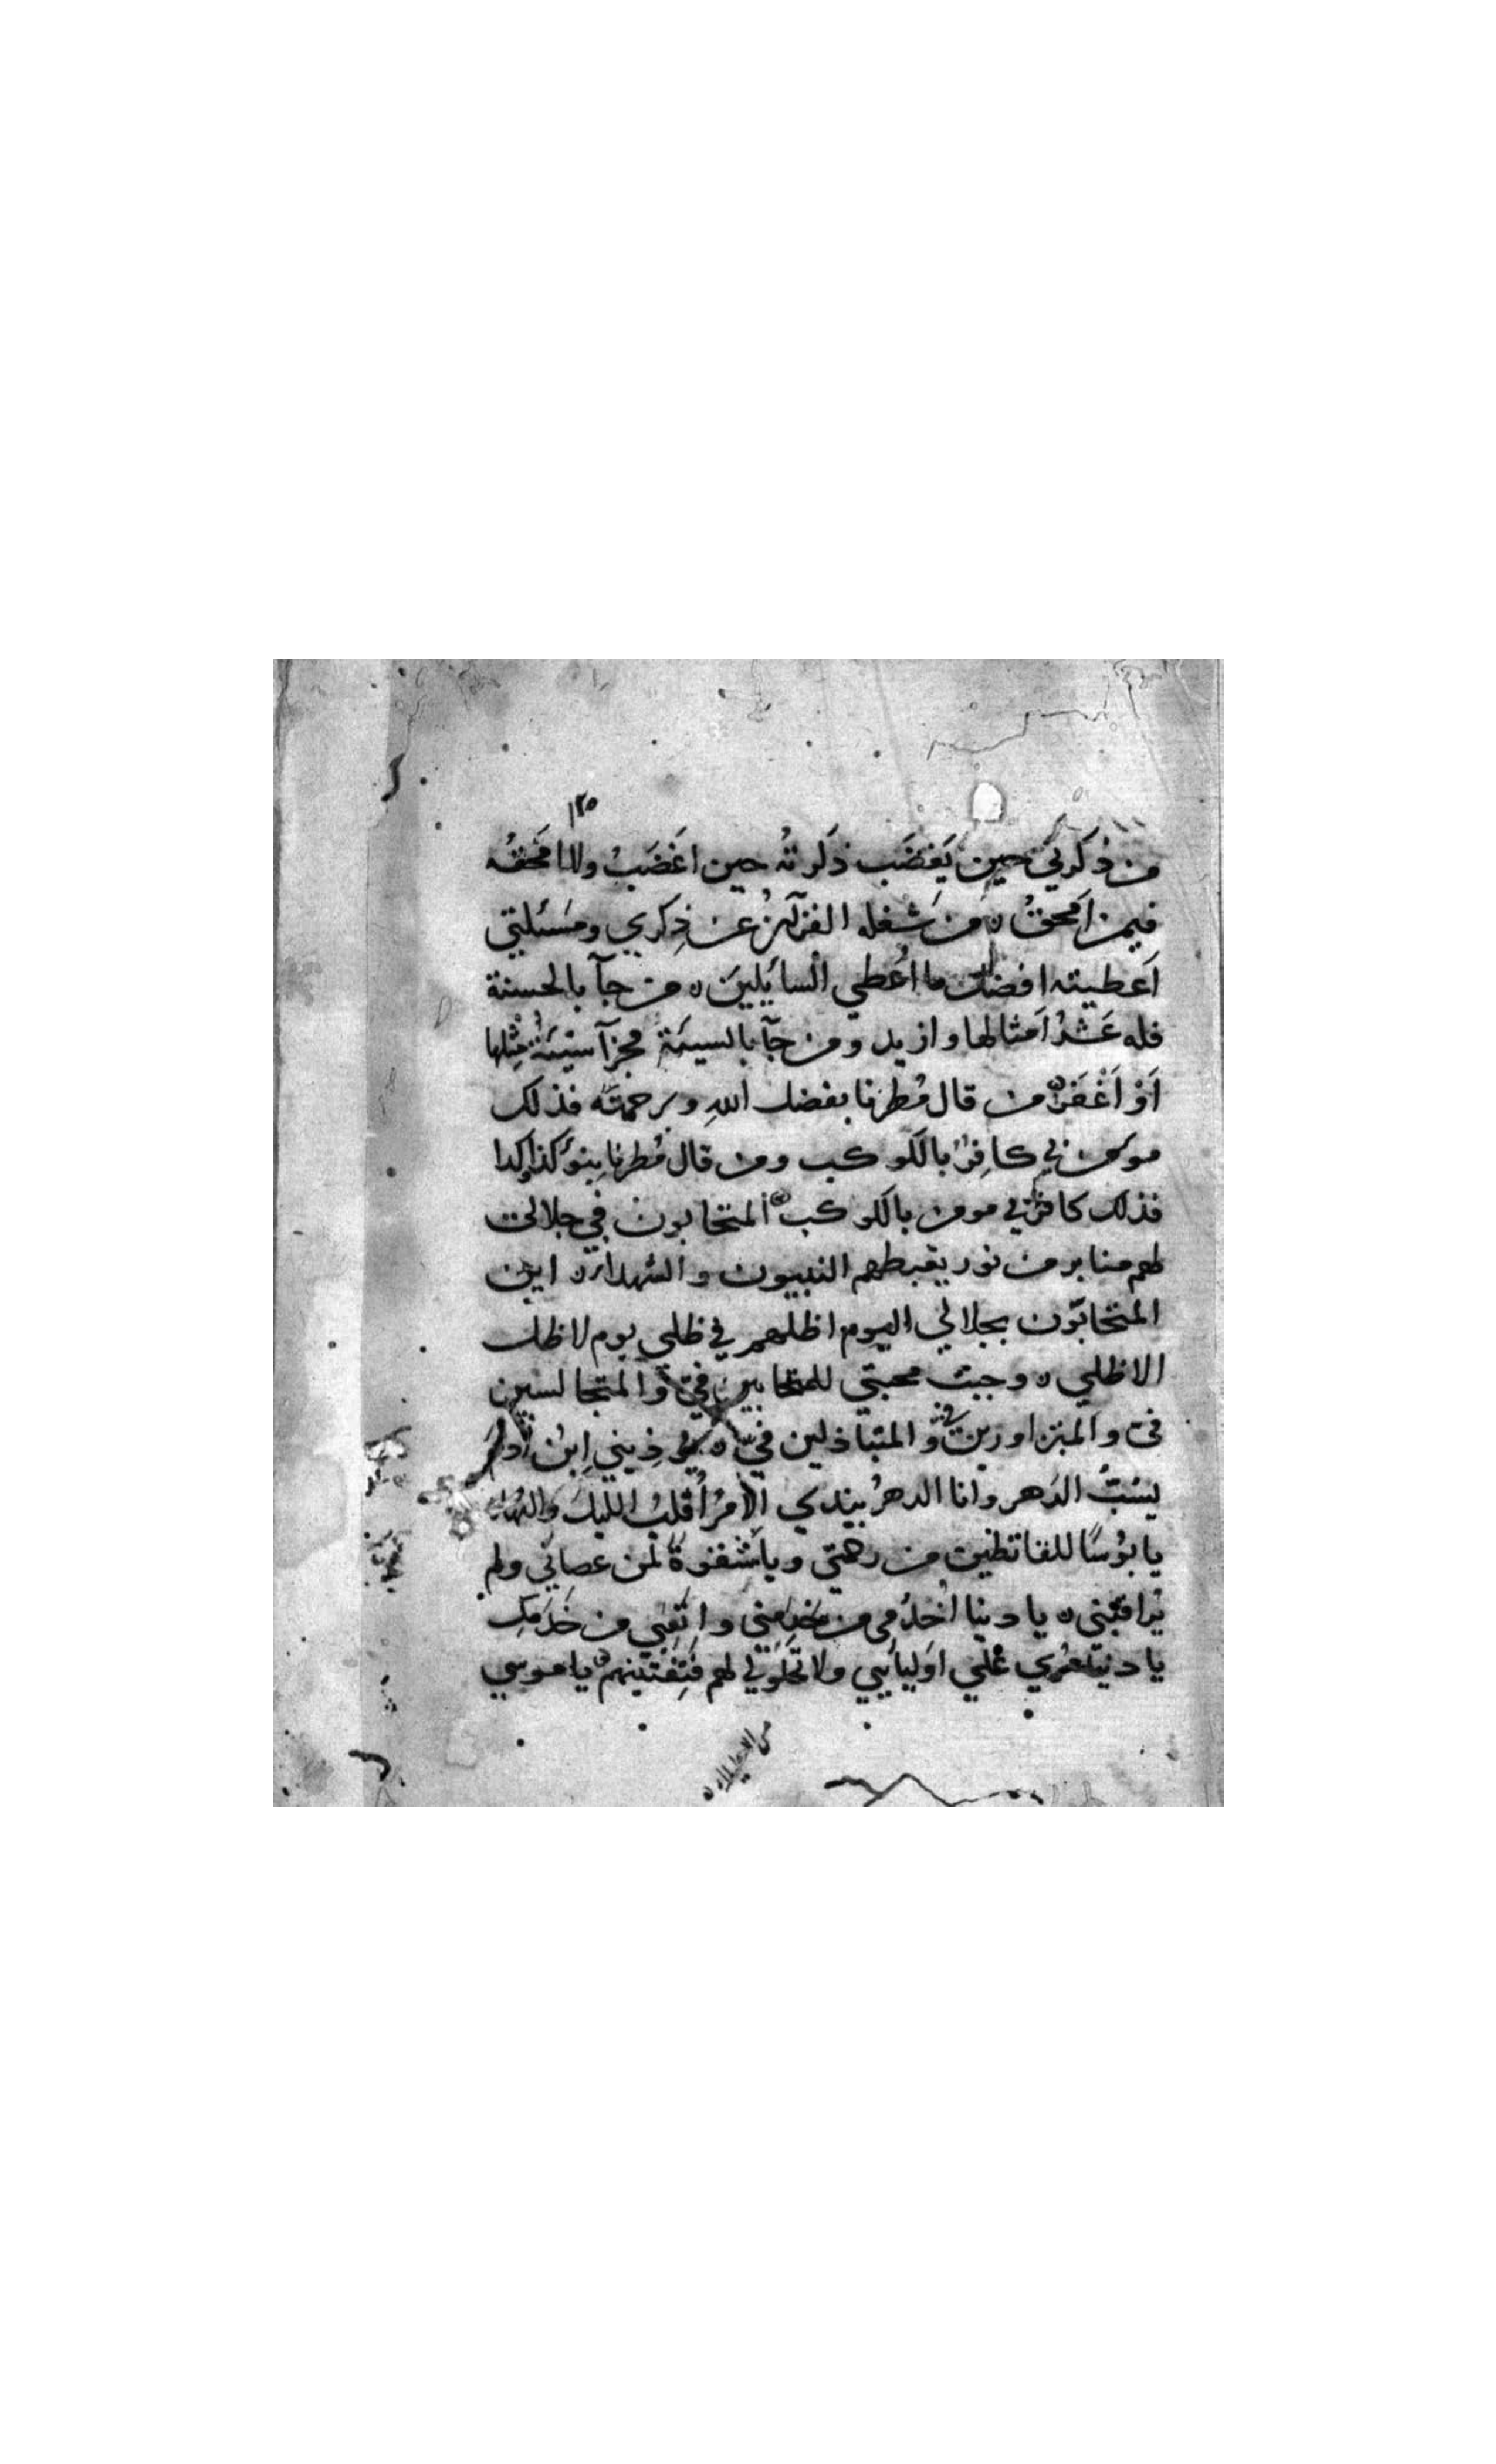 ١٢٥
من ذكرني حين يَغضَب ذكرتُه حين اغَضَبُ ولا امحَقُه
فيمن امحقُ ه من شغله القرآن عن ذِكري ومسَئلتي
اَعطيته افضل ما اُعطي السائلينَ ه من جآ بالحسنة
فله عَشرُ اَمثالها وازيد ومن جآ بالسيئة فجزآ سيّئةٌ مِثلها
اَوْ اَغْفَرُ ه من قال مُطِرنا بفضل اللهِ وبرحمته فذلك
مومن بي كافِرٌ بالكوكب ومن قال مُطرنا بِنوءِ كذا وكذا
فذلك كافرٌ بي مومن بالكوكب ه المتحابون في جلالي
لهم منابر من نور يغبطهم النبيون والشهداءُ ه اين
المتحابّون بجلالي اليوم اظلهم في ظلي يوم لا ظل
الا ظلي ه وجبت محبتي للمتحابين فيّ والمتجالسين
فيّ والمتزاورين فيّ والمتباذلين فيّ ه يُوذيني اِبنُ آدم
يسُبُّ الدَهر وانا الدهرُ بيدي الامرُ اُقلبُ الليل والنهار
يا بؤسًا للقانطين من رحمتي ويا شقوةً لمن عصاني ولم
يُراقبني ه يا دينا اُخدُمي من خدمني واتعِبي من خَدَمكِ
يا دنيا مُرّي عَلي اوَليائي ولا تحلَوْلي لهم فَتَفْتِنيهم ه يا موسي